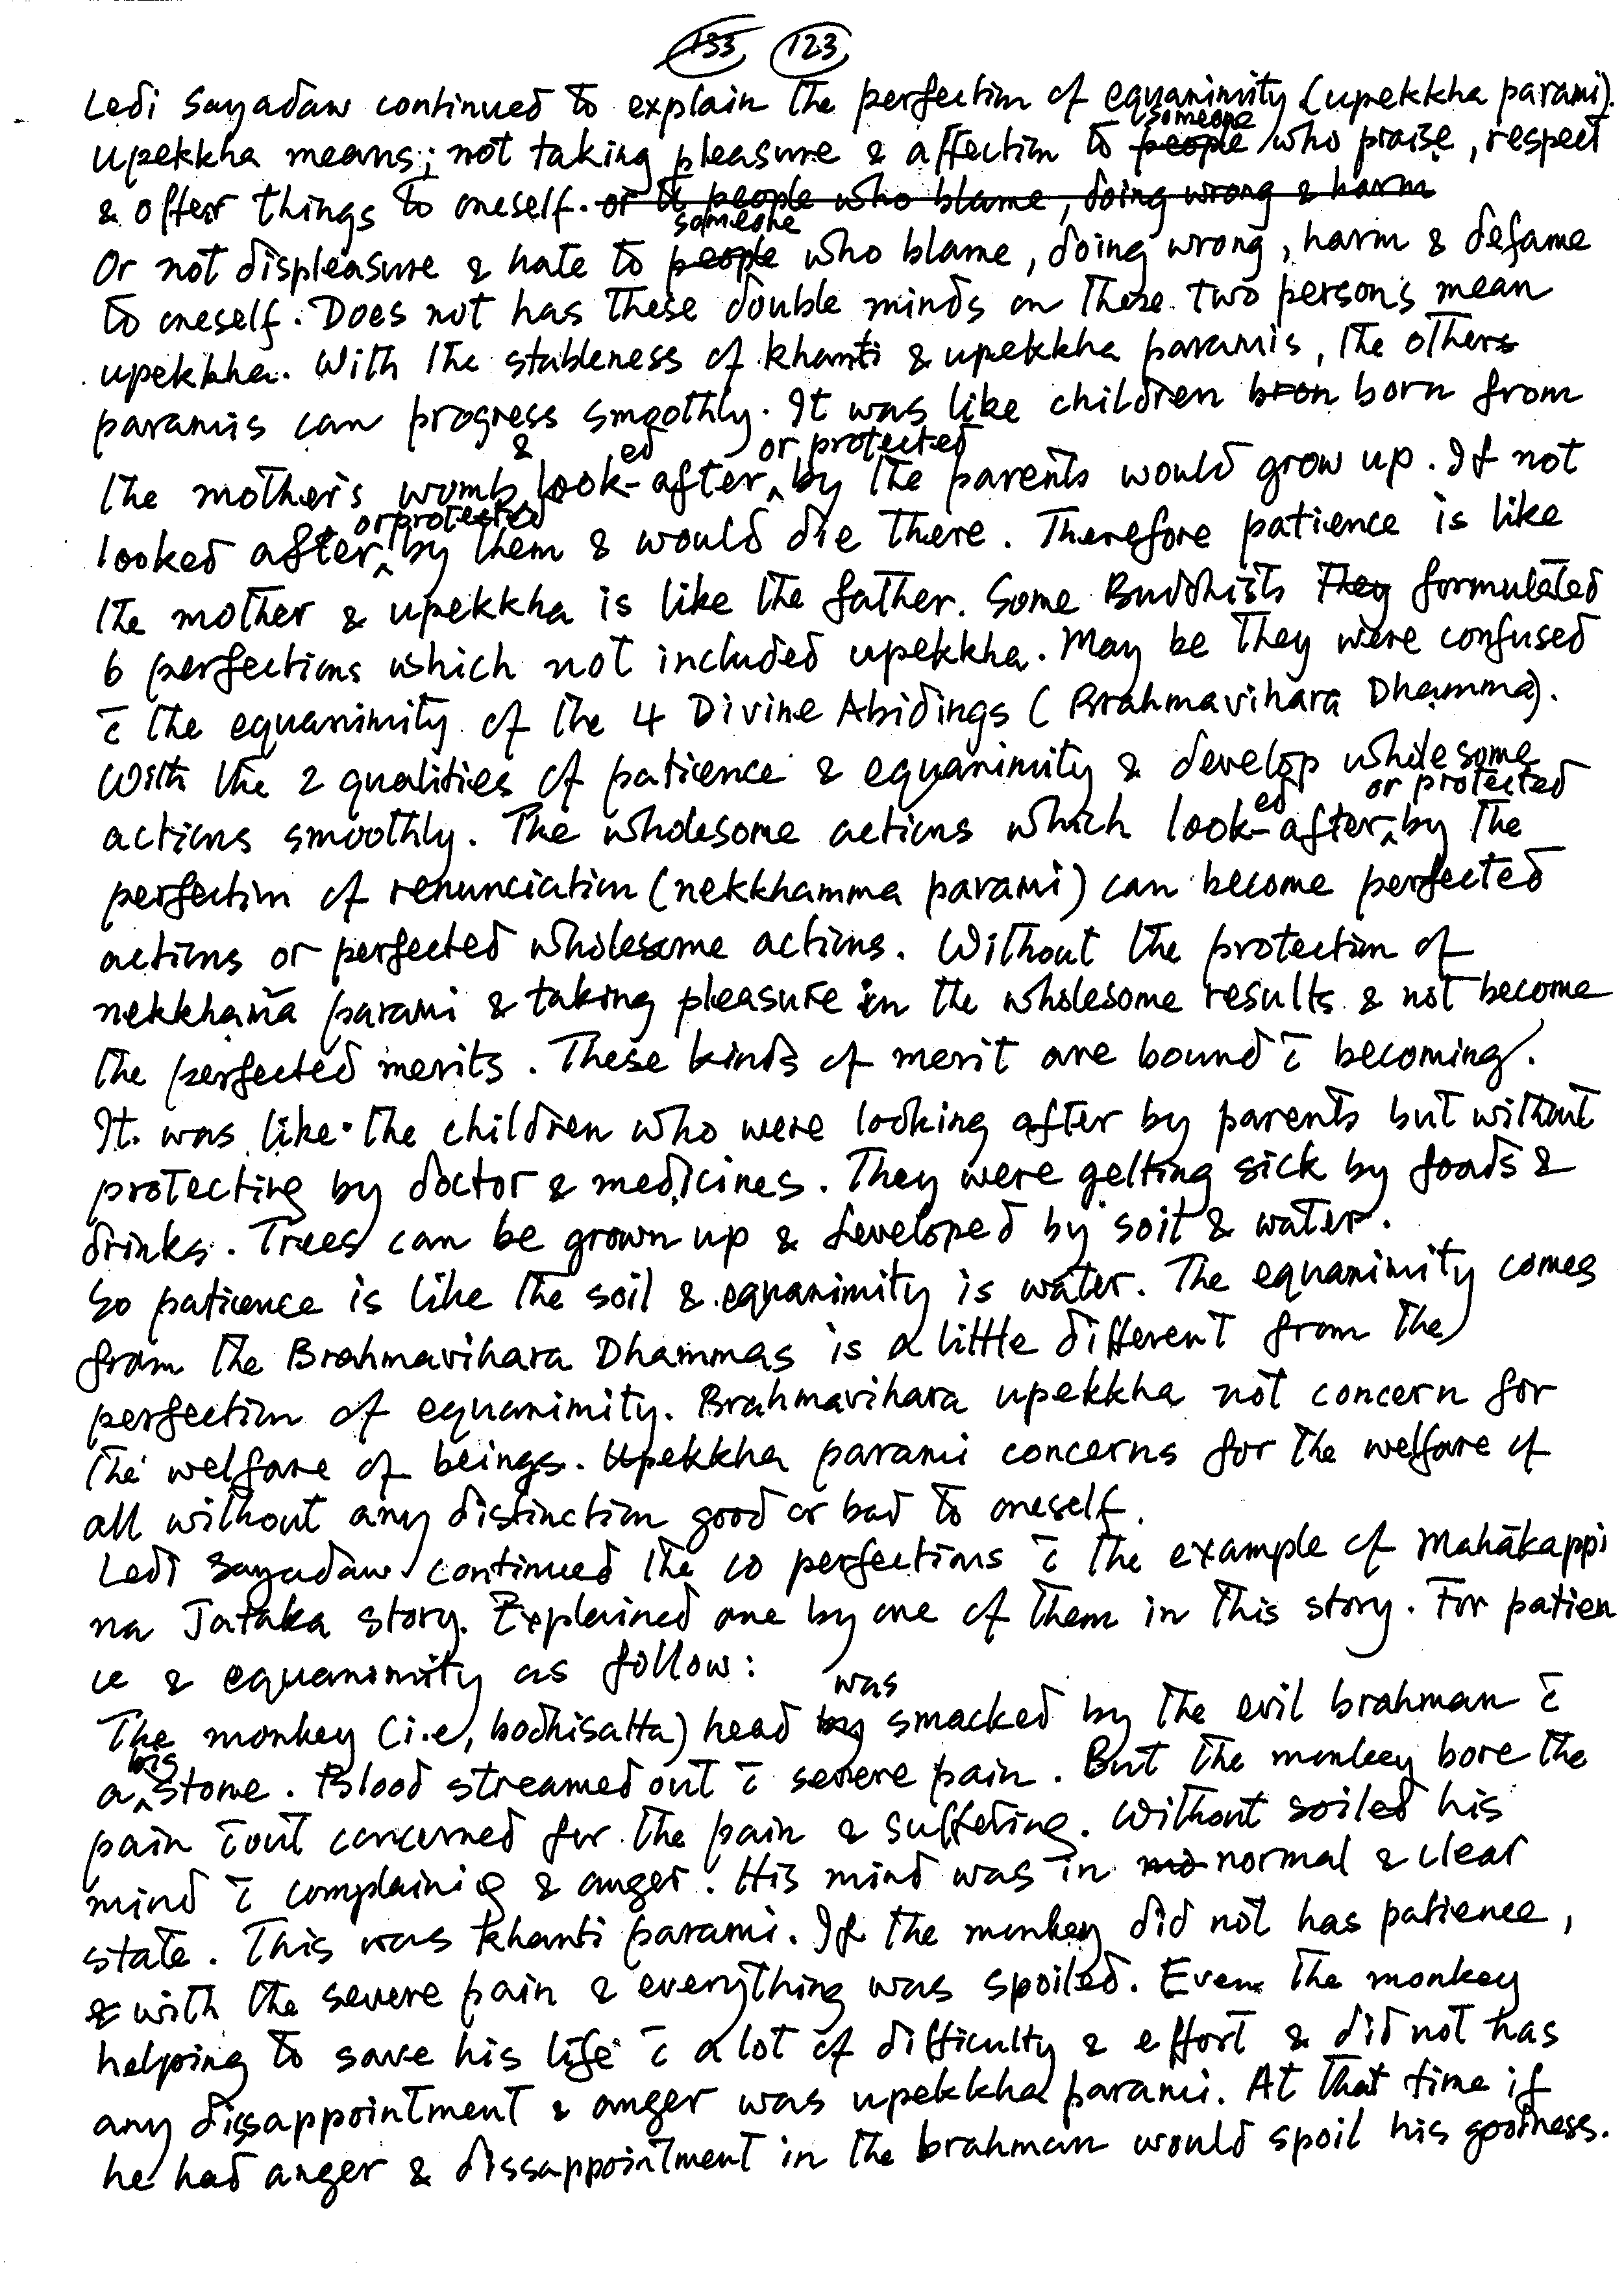 133 123
Ledi Sayadaw continued to explain the perfection of equanimity (upekkha parami).
someone
Upekkha means; not taking pleasure & affection to people who praise, respect
& offer things to oneself. or to people who blame, doing wrong & harm
someone
Or not displeasure & hate to people who blame, doing wrong, harm & defame
to oneself. Does not has these double minds on these two person's mean
upekkha. With the stableness of khanti & upekkha paramis, the others
paramis can progress smoothly. It was like children bron born from
& ed or protected
the mother's womb look-after by the parents would grow up. If not
or protected
looked after by them & would die there. Therefore patience is like
the mother & upekkha is like the father. Some Buddhists they formulated
6 perfections which not included upekkha. May be they were confused
c̄ the equanimity of the 4 Divine Abidings (Brahmavihara Dhamma).
With the 2 qualities of patience & equanimity & develop wholesome
ed or protected
actions smoothly. The wholesome actions which look-after by the
perfection of renunciation (nekkhamma parami) can become perfected
actions or perfected wholesome actions. Without the protection of
nekkhama parami & taking pleasure in the wholesome results & not become
the perfected merits. These kinds of merit are bound c̄ becoming.
It was like the children who were looking after by parents but without
protecting by doctor & medicines. They were getting sick by foods &
drinks. Trees can be grown up & developed by soit & water.
So patience is like the soil & equanimity is water. The equanimity comes
from the Brahmavihara Dhammas is a little different from the
perfection of equanimity. Brahmavihara upekkha not concern for
the welfare of beings. Upekkha parami concerns for the welfare of
all without any distinction good or bad to oneself.
Ledi Sayadaw continued the 10 perfections c̄ the example of Mahākappi
na Jataka story. Explained one by one of them in this story. For patien
ce & equanimity as follow:
was
The monkey (i.e, bodhisatta) head by smacked by the evil brahman c̄
big
a stone. Blood streamed out c̄ severe pain. But the monkey bore the
pain c̄out concerned for the pain & suffering. Without soiled his
mind c̄ complaining & anger. His mind was in no normal & clear
state. This was khanti parami. If the monkey did not has patience,
& with the severe pain & everything was spoiled. Even the monkey
helping to save his life c̄ a lot of difficulty & effort & did not has
any dissappointment & anger was upekkha parami. At that time if
he had anger & dissappointment in the brahman would spoil his goodness.